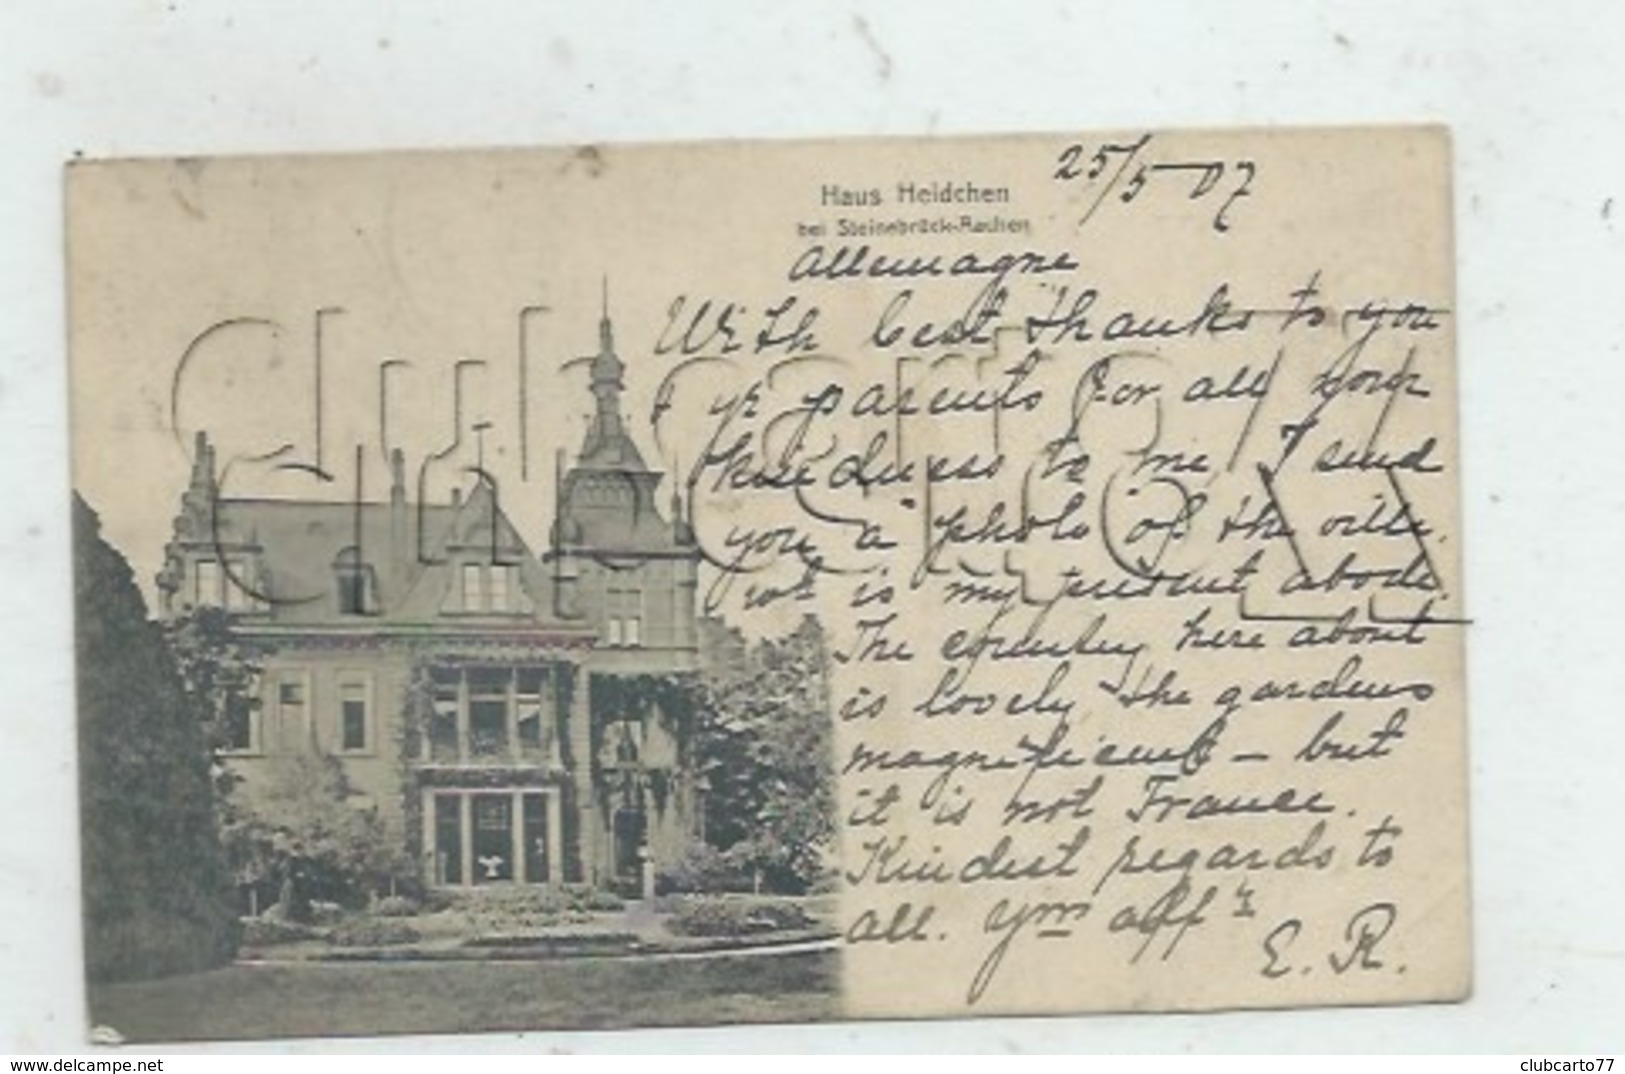 Haus Heidchen
bei Steinebrück-Aachen
25/5-07
Allemagne
With best thanks to you
& yr parents for all your
kindness to me, I send
you a photo of the villa,
wh is my present abode.
The country here about
is lovely the gardens
magnificent – but
it is not France.
Kindest regards to
all. Yrs aff'ly
E. R.
ClubCarto77
www.delcampe.net
clubcarto77